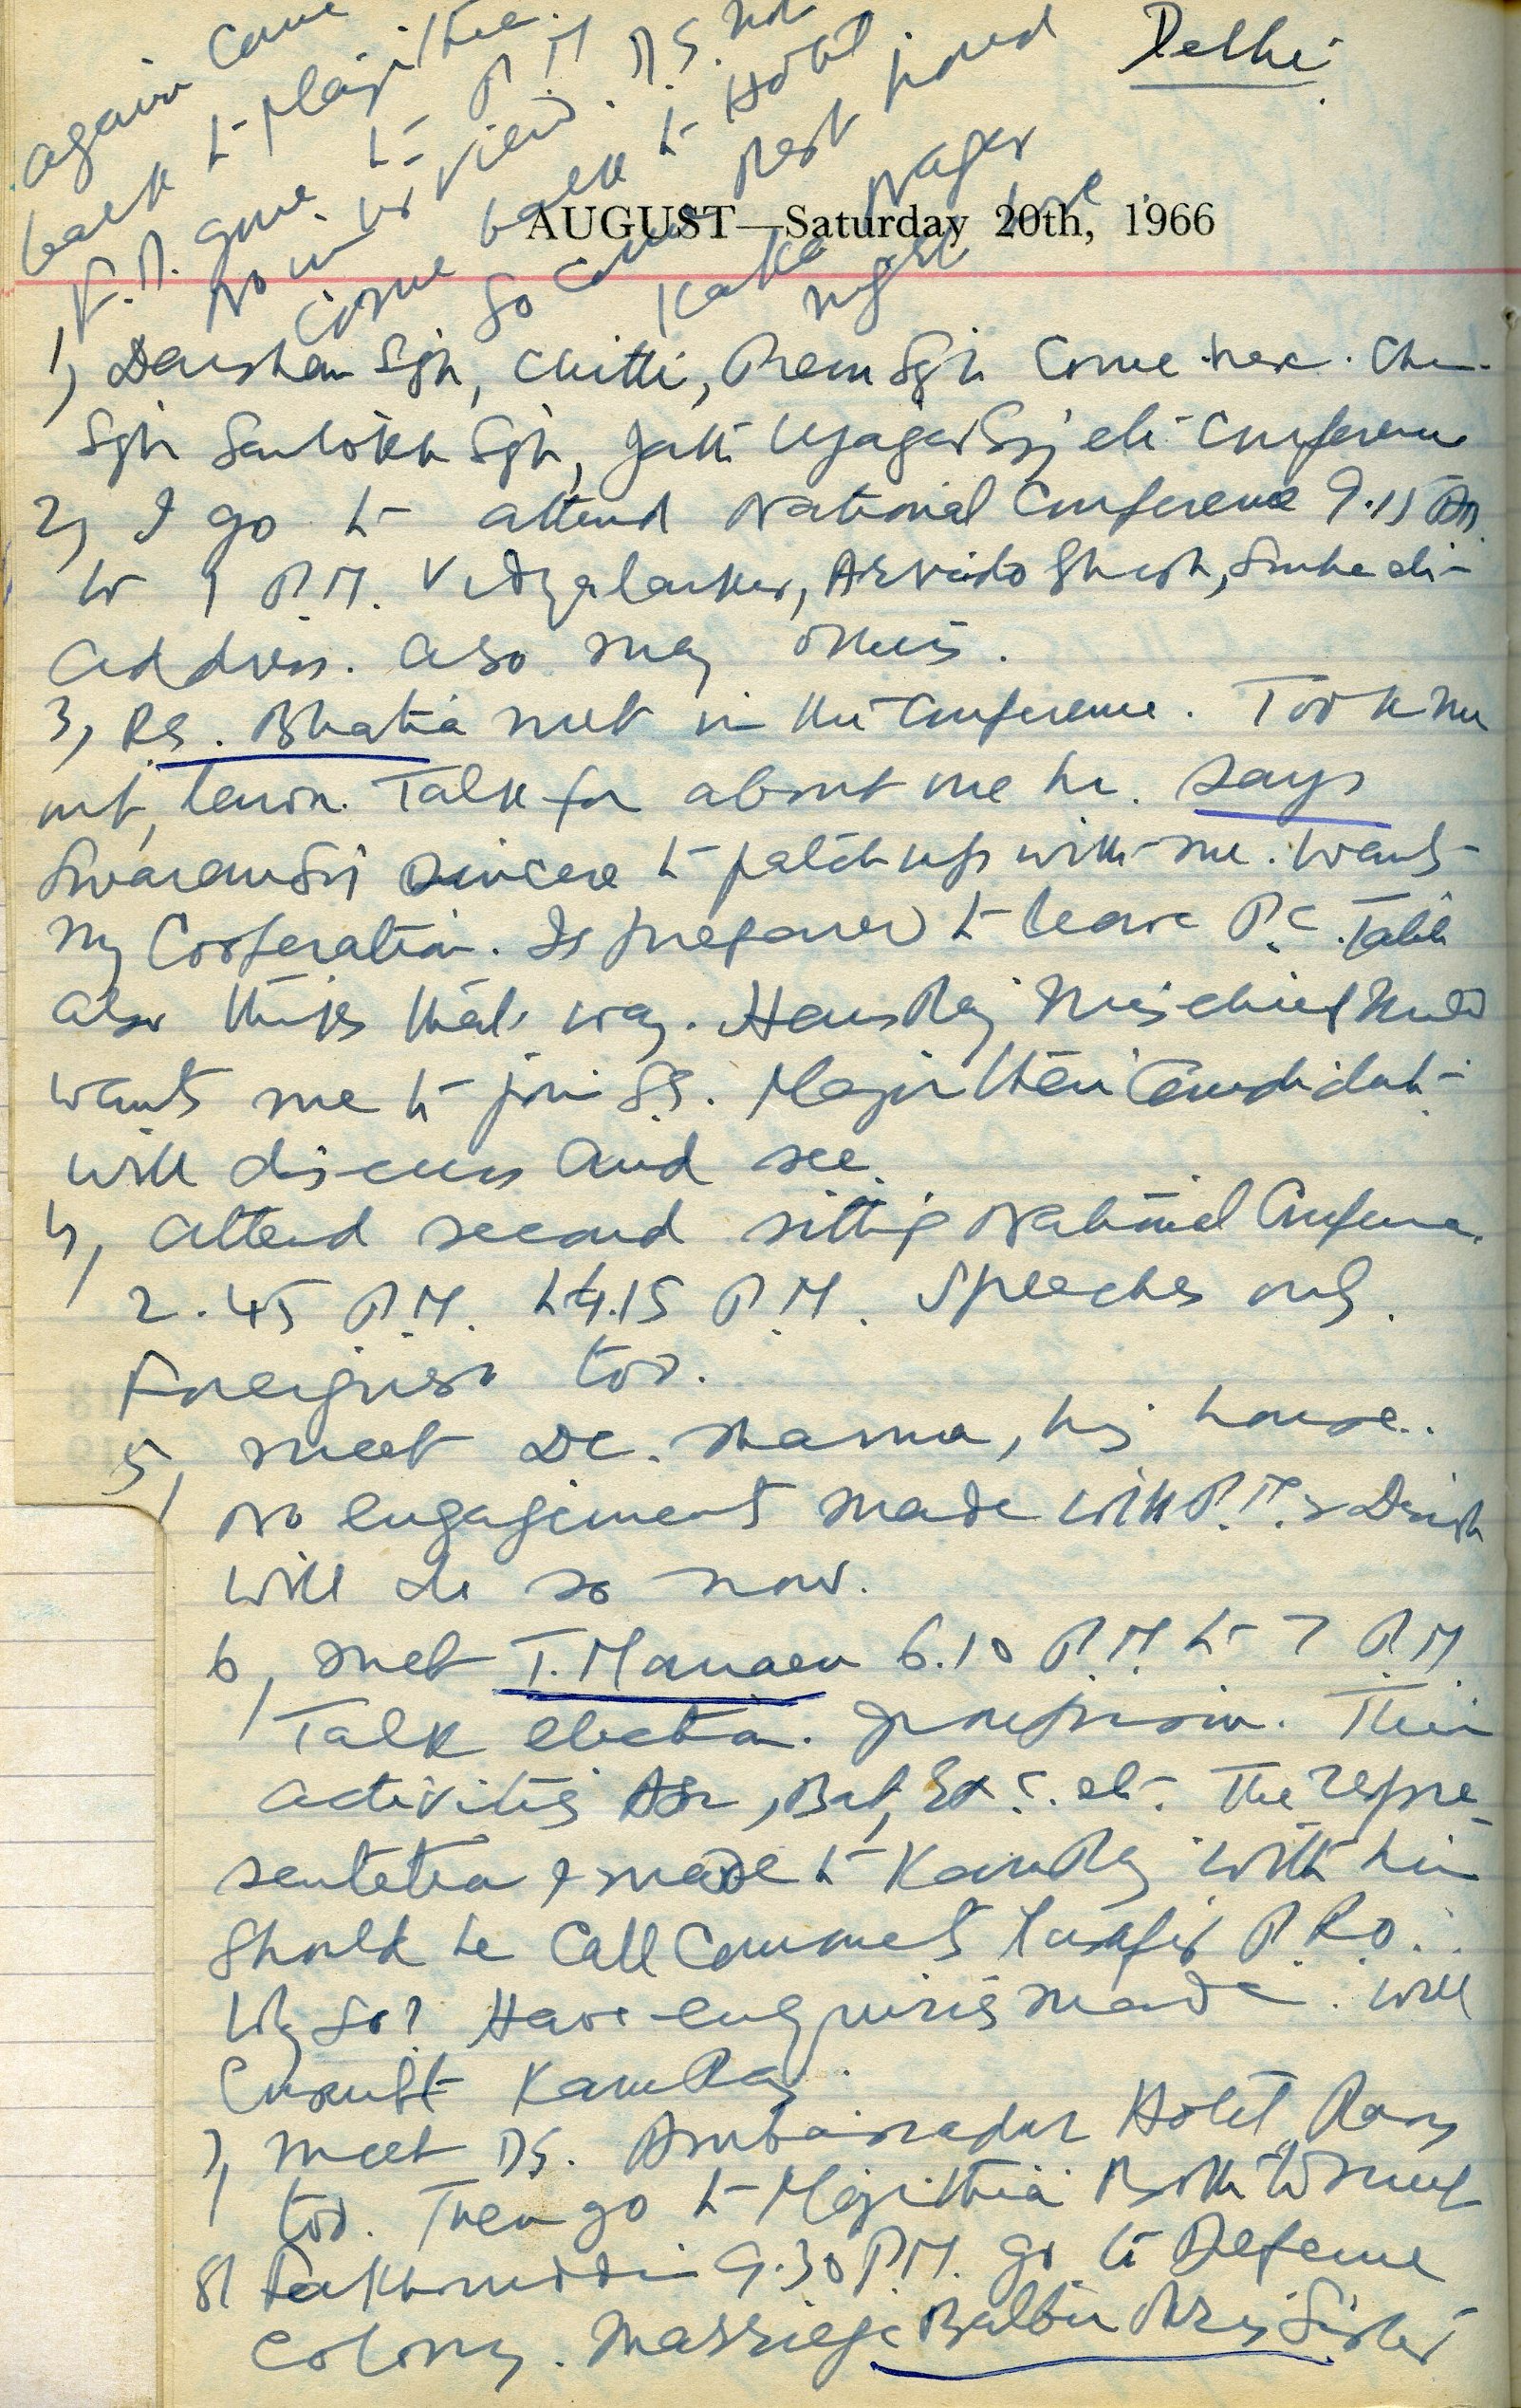 Delhi
again come
back to Majithia.
F.A. gone to P.M. D.S. not
No interview.
come back to Hotel
So come Rest food
Kaka Nagar
night here
AUGUST—Saturday 20th, 1966
1, Darshan Sgh, Chitti, Prem Sgh come here.
Sgh Santokh Sgh, Ujagar Sgh etc Conference
2, I go to attend National Conference 9.15 AM
to 1 P.M. Vidyalankar, Ghosh, Sinha etc
address. also many others.
3, RS. Bhatia met in the Conference. Took me
out, Talk for about one hr. Says
Swaran Sgh sincere to patch up with me. wants
my Cooperation. Is prepared to leave P.C.
also thinks that way. Hans Raj Mischief
wants me to join SS. Majithia Candidate
will discuss and see
4, attend second sitting National Conference.
2.45 P.M. to 4.15 P.M. Speeches only.
Foreigners too.
5, meet DC. Sharma, his house.
No engagement made with P.M. & Dinesh
will do so now.
6, met T. Manaen 6.10 P.M. to 7 P.M.
Talk election. Their
activities Asr, Bat, etc. The repre-
sentation I made to KamRaj with him
should he call Comments P.R.O.
Why so? Have enquiries made. will
Consult KamRaj.
7, meet D.S. Ambassador Hotel,
too. Then go to Majithia Both to meet
8, Fakhruddin 9.30 P.M. go to Defence
Colony. Marriage Balbir Sister